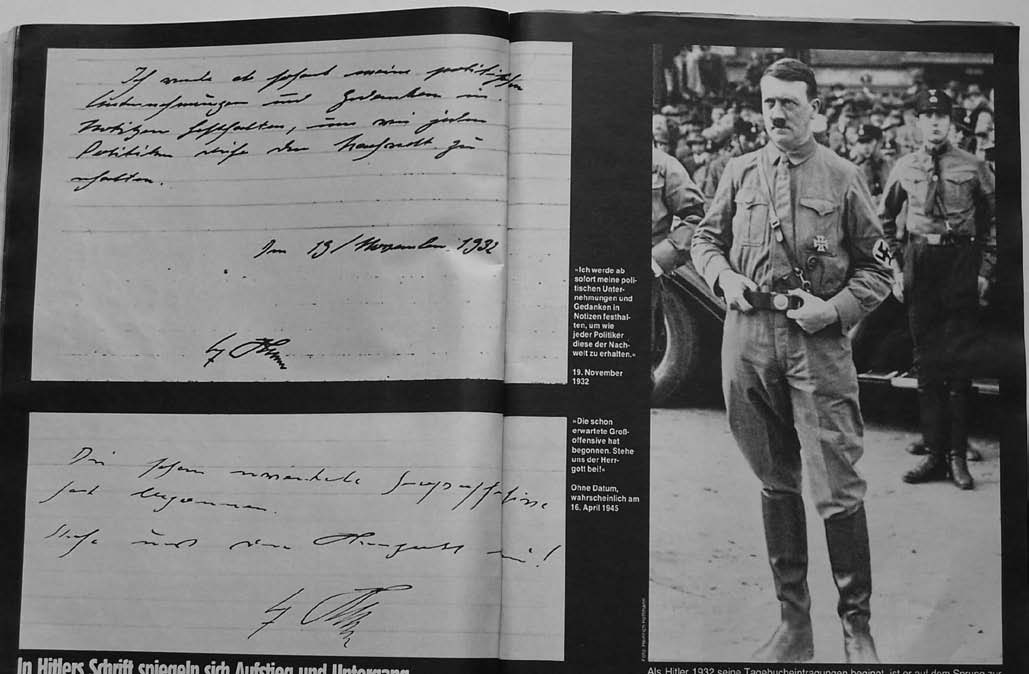 Ich werde ab sofort meine politischen
Unternehmungen und Gedanken in
Notizen festhalten, um wie jeder
Politiker diese der Nachwelt zu
erhalten.
Den 19/November 1932
»Ich werde ab
sofort meine poli-
tischen Unter-
nehmungen und
Gedanken in
Notizen festhal-
ten, um wie
jeder Politiker
diese der Nach-
welt zu erhalten.«
19. November
1932
Die schon erwartete Großoffensive
hat begonnen.
Stehe uns der Herrgott bei!
»Die schon
erwartete Groß-
offensive hat
begonnen. Stehe
uns der Herr-
gott bei!«
Ohne Datum,
wahrscheinlich am
16. April 1945
Foto: Heinrich Hoffmann
In Hitlers Schrift spiegeln sich Aufstieg und Untergang
Als Hitler 1932 seine Tagebucheintragungen beginnt, ist er auf dem Sprung zur